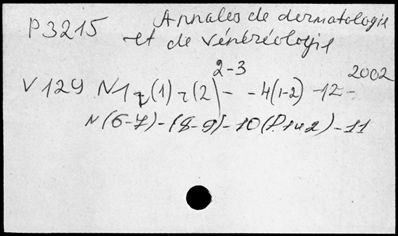 P3215 Annales de dermatologie
et de vénéréologie
2-3 2002
V129 N1 (1) (2) - - 4(1-2) -12-
N(6-7)-(8-9)-10(P1и2)-11